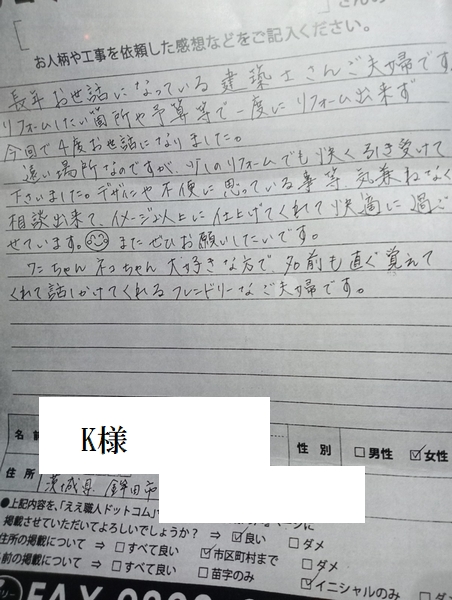 お人柄や工事を依頼した感想などをご記入ください。
長年お世話になっている建築士さんご夫婦です。
リフォームしたい箇所や予算等で一度にリフォーム出来ず
今回で4度お世話になりました。
遠い場所なのですが、少しのリフォームでも快く引き受けて
下さいました。デザインや不便に思っている事等気兼ねなく
相談出来て、イメージ以上に仕上げてくれて快適に過ご
せています。またぜひお願いしたいです。
ワンちゃんネコちゃん大好きな方で、名前も直ぐ覚えて
くれて話しかけてくれるフレンドリーなご夫婦です。
名前 K様 性別 □男性 ☑女性
住所 茨城県 鉾田市
●上記内容を、「ええ職人ドットコム」
掲載させていただいてよろしいでしょうか? ⇒ ☑良い □ダメ
住所の掲載について ⇒ □すべて良い ☑市区町村まで □ダメ
名前の掲載について ⇒ □すべて良い □苗字のみ ☑イニシャルのみ □ダメ
FAX